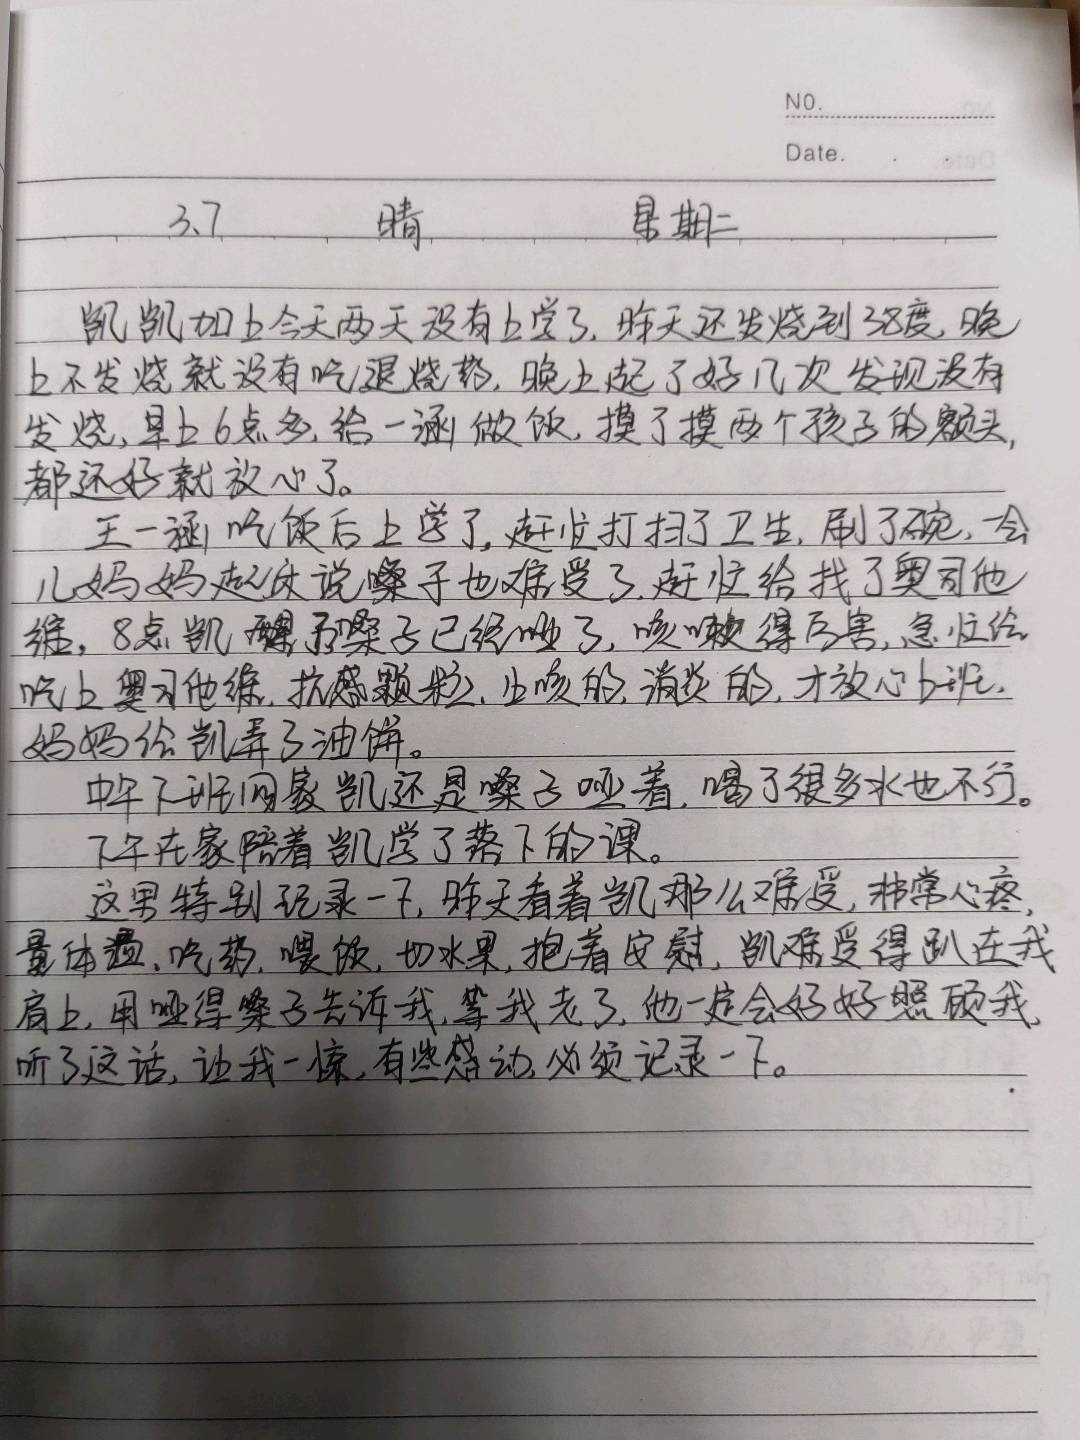 NO.
Date.
3.7 晴 星期二
凯凯加上今天两天没有上学了，昨天还发烧到38度，晚
上不发烧就没有吃退烧药，晚上起了好几次发现没有
发烧，早上6点多，给一涵做饭，摸了摸两个孩子的额头，
都还好就放心了。
王一涵吃饭后上学了，赶忙打扫了卫生，刷了碗，一会
儿妈妈起床说嗓子也难受了，赶忙给找了奥司他
维，8点凯醒了嗓子已经哑了，咳嗽得厉害，急忙给
吃上奥司他维，抗感颗粒，止咳的，消炎的，才放心上班，
妈妈给凯弄了油饼。
中午下班回家凯还是嗓子哑着，喝了很多水也不行。
下午在家陪着凯学了落下的课。
这里特别记录一下，昨天看着凯那么难受，非常心疼，
量体温、吃药，喂饭，切水果，抱着安慰，凯难受得趴在我
肩上，用哑得嗓子告诉我，等我老了，他一定会好好照顾我，
听了这话，让我一惊，有些感动，必须记录一下。